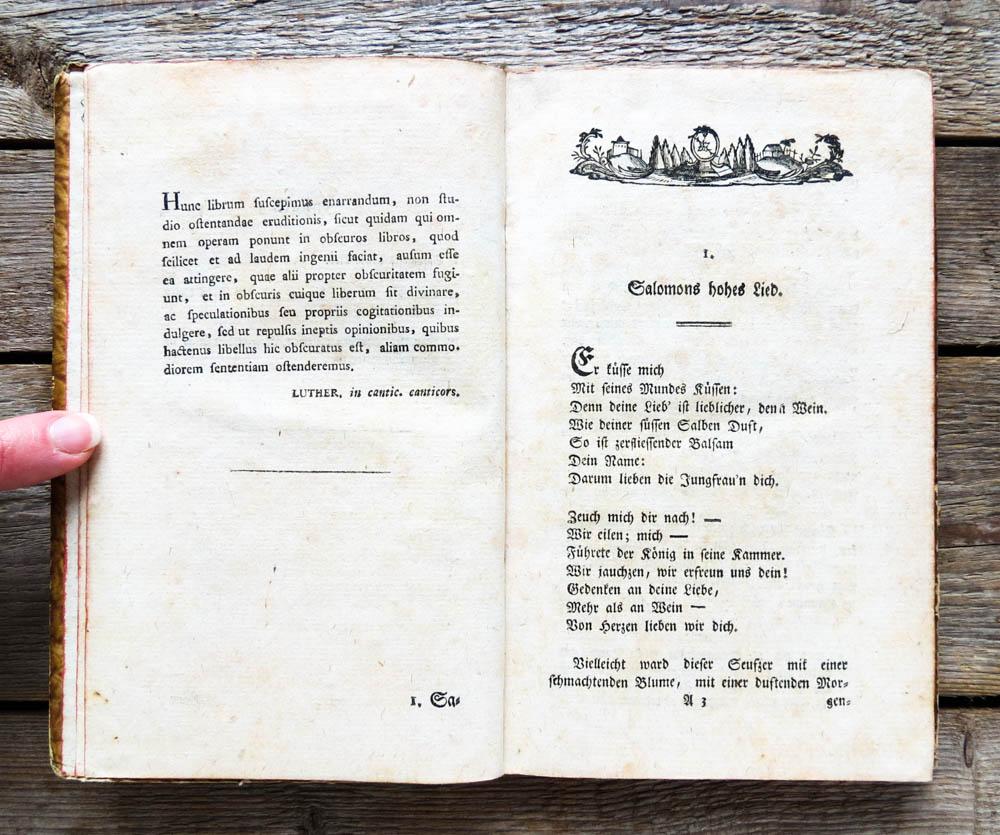 Hunc librum ſuſcepimus enarrandum, non ſtu-
dio oſtentandae eruditionis, ſicut quidam qui om-
nem operam ponunt in obſcuros libros, quod
ſcilicet et ad laudem ingenii faciat, auſum eſſe
ea attingere, quae alii propter obſcuritatem fugi-
unt, et in obſcuris cuique liberum ſit divinare,
ac ſpeculationibus ſeu propriis cogitationibus in-
dulgere, ſed ut repulſis ineptis opinionibus, quibus
hactenus libellus hic obſcuratus eſt, aliam commo-
diorem ſententiam oſtenderemus.
LUTHER. in cantic. canticor.
1. Sa-
1.
Salomons hohes Lied.
Er küſſe mich
Mit ſeines Mundes Küſſen:
Denn deine Lieb' iſt lieblicher, denn Wein.
Wie deiner ſüſſen Salben Duft,
So iſt zerflieſſender Balſam
Dein Name:
Darum lieben die Jungfrau'n dich.
Zeuch mich dir nach! —
Wir eilen; mich —
Führete der König in ſeine Kammer.
Wir jauchzen, wir erfreun uns dein!
Gedenken an deine Liebe,
Mehr als an Wein —
Von Herzen lieben wir dich.
Vielleicht ward dieſer Seufzer mit einer
ſchmachtenden Blume, mit einer duftenden Mor-
A 3 gen-